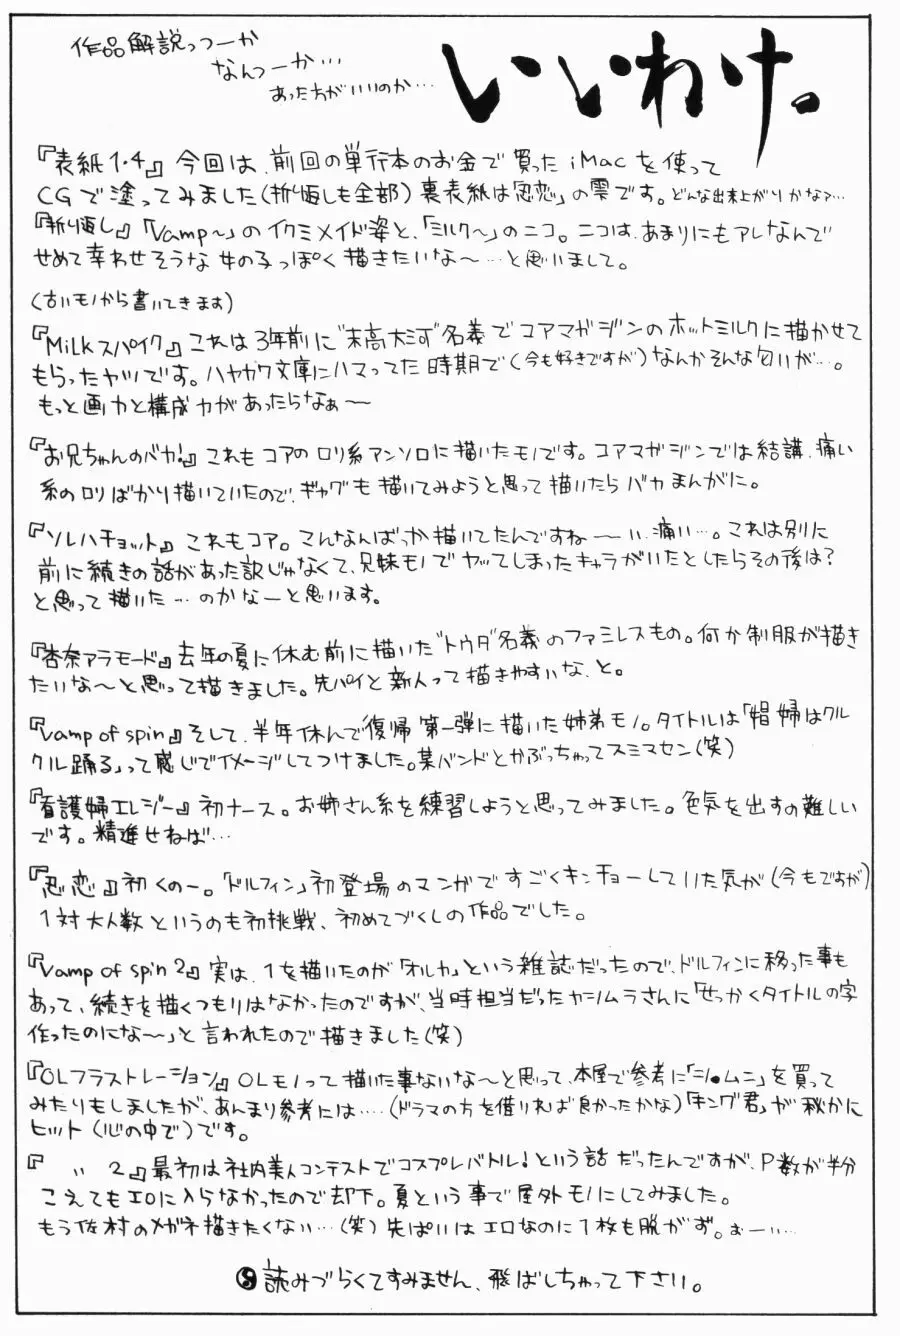 作品解説っつーか
なんつーか…
あった方がいいのか…
いいわけ。
『表紙1・4』今回は、前回の単行本のお金で買ったiMacを使って
CGで塗ってみました(折返しも全部)裏表紙は「忍恋」の雫です。どんな出来上がりかなァ…
『折り返し』「Vamp〜」のイクミメイド姿と、「ミルク〜」のニコ。ニコは、あまりにもアレなんで
せめて幸わせそうな女の子っぽく描きたいな〜…と思いまして。
(古いモノから書いてきます)
『Milkスパイク』これは3年前に"末高大河"名義でコアマガジンのホットミルクに描かせて
もらったヤツです。ハヤカワ文庫にハマってた時期で(今も好きですが)なんかそんな匂いが…。
もっと画力と構成力があったらなぁ〜
『お兄ちゃんのバカ!』これもコアのロリ系アンソロに描いたモノです。コアマガジンでは結講、痛い
系のロリばかり描いていたので、ギャグも描いてみようと思って描いたらバカまんがに。
『ソレハチョット』これもコア。こんなんばっか描いてたんですね—い、痛い…。これは別に
前に続きの話があった訳じゃなくて、兄妹モノでヤッてしまったキャラがいたとしたらその後は?
と思って描いた…のかなーと思います。
『杏奈アラモード』去年の夏に休む前に描いた"トウダ"名義のファミレスもの。何か制服が描き
たいな〜と思って描きました。先パイと新人って描きやすいな、と。
『Vamp of spin』そして、半年休んで復帰第一弾に描いた姉弟モノ。タイトルは「娼婦はクル
クル踊る」って感じでイメージしてつけました。某バンドとかぶっちゃってスミマセン(笑)
『看護婦エレジー』初ナース。お姉さん系を練習しようと思ってみました。色気を出すの難しい
です。精進せねば…
『忍恋』初くの一。「ドルフィン」初登場のマンガですごくキンチョーしていた気が(今もですが)
1対大人数というのも初挑戦、初めてづくしの作品でした。
『Vamp of spin 2』実は、1を描いたのが「オルカ」という雑誌だったので、ドルフィンに移った事も
あって、続きを描くつもりはなかったのですが、当時担当だったヤシムラさんに「せっかくタイトルの字
作ったのにな〜」と言われたので描きました(笑)
『OLフラストレーション』OLモノって描いた事ないな〜と思って、本屋で参考に「シ●ムニ」を買って
みたりもしましたが、あんまり参考には‥‥(ドラマの方を借りれば良かったかな)「キング君」が秘かに
ヒット(心の中で)です。
『 〃 2』最初は社内美人コンテストでコスプレバトル!という話だったんですが、P数が半分
こえてもエロに入らなかったので却下。夏という事で屋外モノにしてみました。
もう佐村のメガネ描きたくない…(笑)先ぱいはエロなのに1枚も脱がず。ぉーぃ…
読みづらくてすみません、飛ばしちゃって下さい。